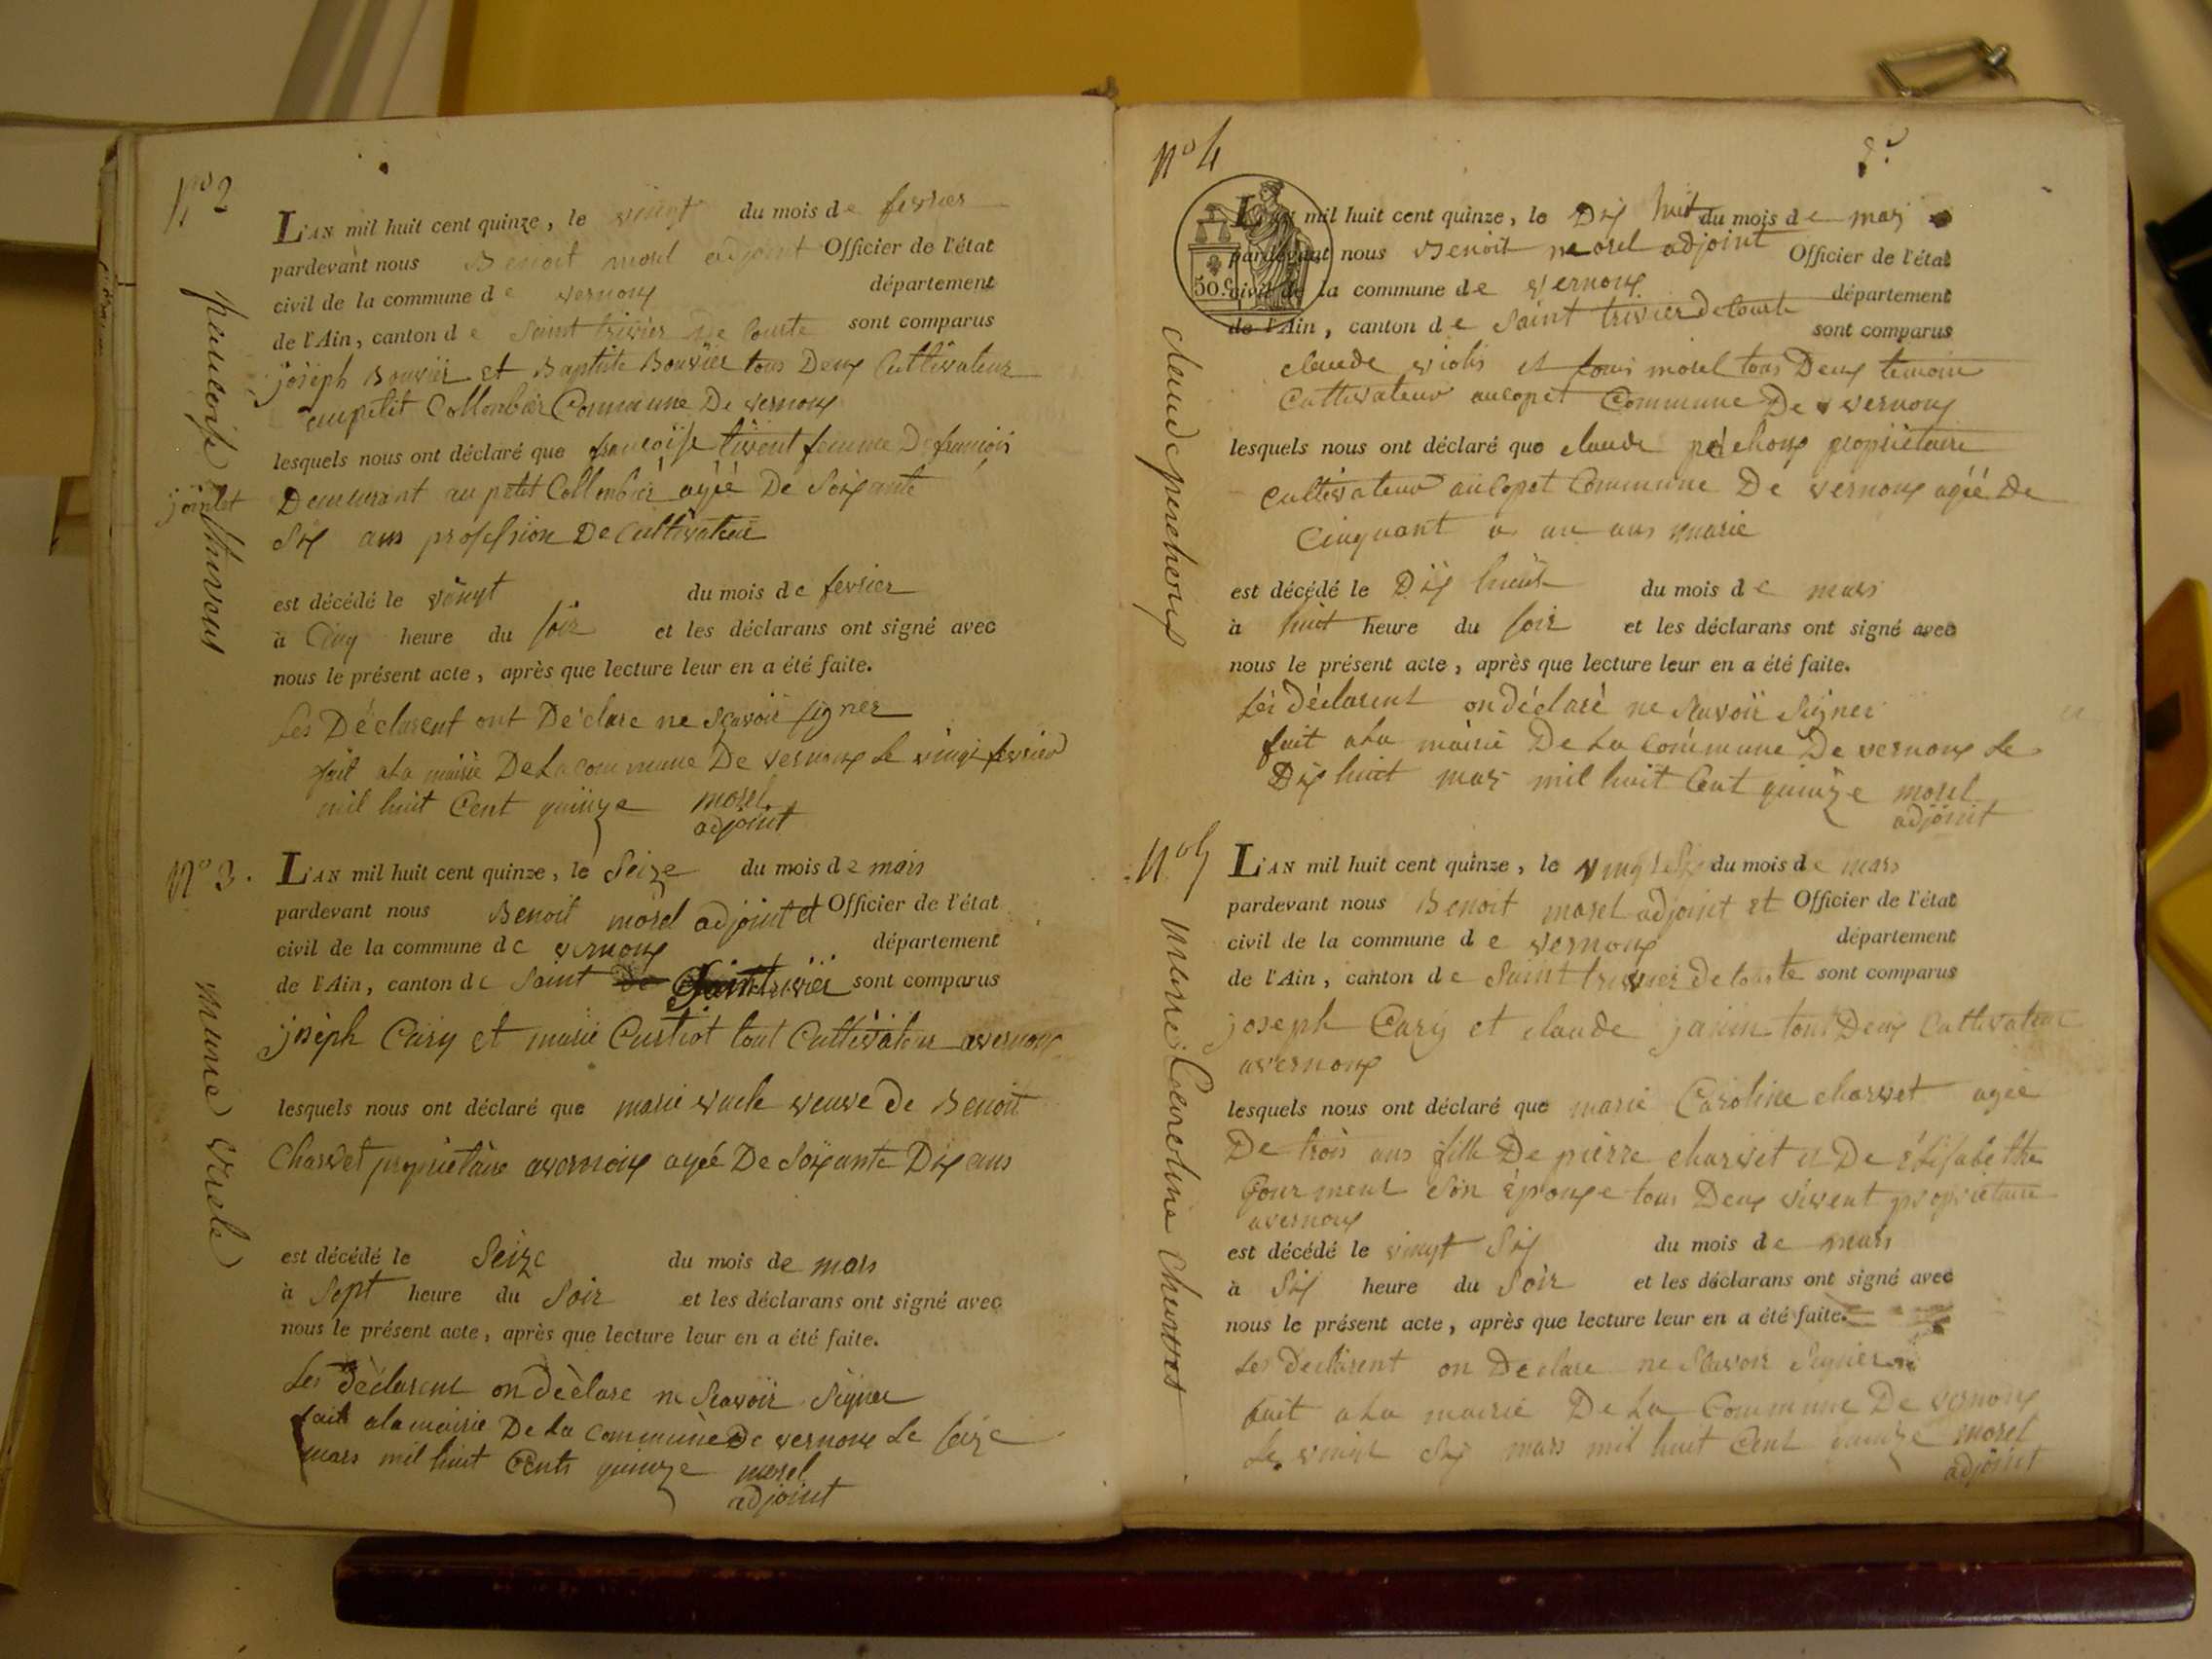 No 2
L'AN mil huit cent quinze, le vingt du mois de fevrier
pardevant nous Benoit morel adjoint Officier de l'état
civil de la commune de vernoux département
de l'Ain, canton de Saint trivier De Courte sont comparus
joseph Bouvier et Baptiste Bouvier tous Deux Cultivateur
aupetit Collombier Commune De vernoux
lesquels nous ont déclaré que francoisse femme De francois
joinlet Demeurant au petit Collombier agée De Soixante
Six ans profession De Cultivateur
est décédé le vingt du mois de fevrier
à Cinq heure du Soir et les déclarans ont signé avec
nous le présent acte, après que lecture leur en a été faite.
Les Déclarent ont Déclare ne Scavoir signer
fait ala mairie De La commune De vernoux Le vingt fevrier
mil huit Cent quinze morel
adjoint
No 3.
marie viele
L'AN mil huit cent quinze, le Seize du mois de mars
pardevant nous Benoit morel adjoint et Officier de l'état
civil de la commune de vernoux département
de l'Ain, canton de Saint trivier sont comparus
joseph Cary et marie tout Cultivateur avernoux
lesquels nous ont déclaré que marie veuve De Benoit
Charvet propriétaire avernoux agée De Soixante Dix ans
est décédé le Seize du mois de mars
à Sept heure du Soir et les déclarans ont signé avec
nous le présent acte, après que lecture leur en a été faite.
Les déclarent on déclare ne Scavoir Signer
fait ala mairie De La Commune De vernoux Le Seize
mars mil huit Cents quinze morel
adjoint
No 4
50.C
claude perchoux
L'AN mil huit cent quinze, le Dix huit du mois de mars
pardevant nous Benoit morel adjoint Officier de l'état
civil de la commune de vernoux département
de l'Ain, canton de Saint trivier de Courte sont comparus
claude et morel tous Deux temoin
Cultivateur aucopet Commune De vernoux
lesquels nous ont déclaré que claude perchoux propriétaire
Cultivateur aucopet Commune De vernoux agéé De
Cinquant un ans marie
est décédé le Dix huit du mois de mars
à huit heure du Soir et les déclarans ont signé avec
nous le présent acte, après que lecture leur en a été faite.
Les déclarent on déclaré ne Scavoir Signer
fait ala mairie De La Commune De vernoux Le
Dix huit mars mil huit Cent quinze morel
adjoint
No 5
marie Caroline Charvet
L'AN mil huit cent quinze, le vingt Six du mois de mars
pardevant nous Benoit morel adjoint et Officier de l'état
civil de la commune de vernoux département
de l'Ain, canton de Saint trivier De Courte sont comparus
joseph Cary et claude janin tous Deux Cultivateur
avernoux
lesquels nous ont déclaré que marie Caroline charvet agée
De trois ans fille De pierre charvet et De Elisabethe
Gourment Son épouxe tous Deux vivent propriétaire
avernoux
est décédé le vingt Six du mois de mars
à Six heure du Soir et les déclarans ont signé avec
nous le présent acte, après que lecture leur en a été faite.
Les Declarent on Declare ne Scavoir Signer
fait ala mairie De La Commune De vernoux
Le vingt Six mars mil huit Cent quinze morel
adjoint